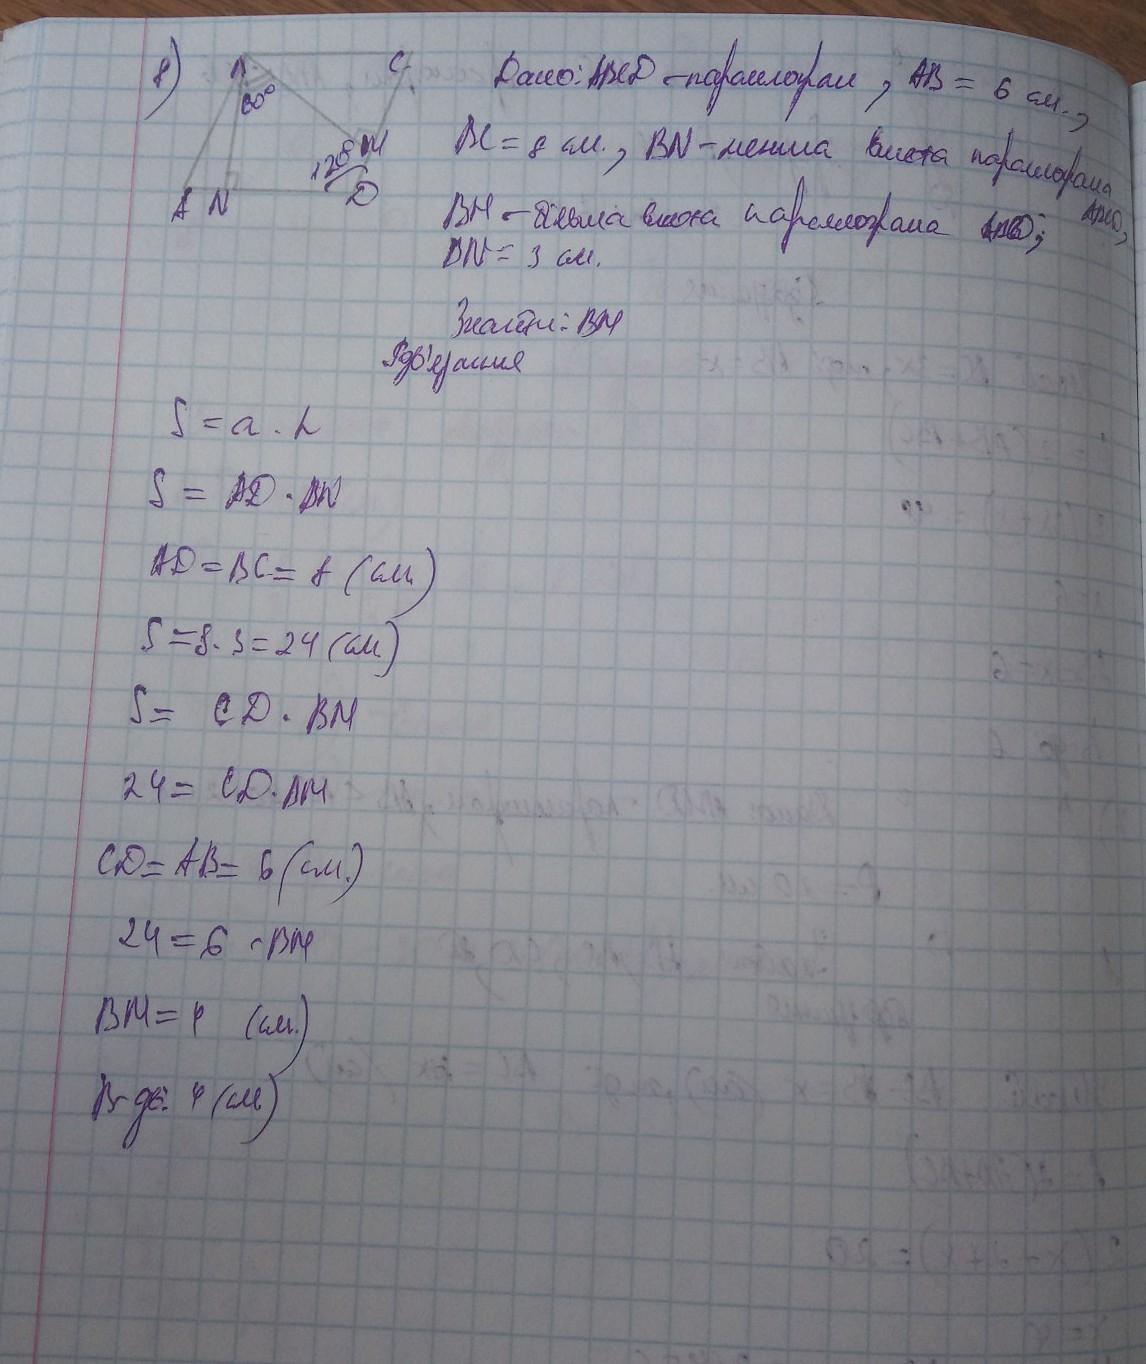 8)
B
C
60°
M
120°
A N
D
Дано: ABCD - паралелограм, AB = 6 см.,
BC = 8 см., BN - менша висота паралелограма ABCD,
BM - більша висота паралелограма ABCD;
BN = 3 см.
Знайти: BM
Розв'язання
S = a · h
S = AD · BN
AD = BC = 8 (см.)
S = 8 · 3 = 24 (см)
S = CD · BM
24 = CD · BM
CD = AB = 6 (см.)
24 = 6 · BM
BM = 4 (см.)
В-дь: 4 (см.)